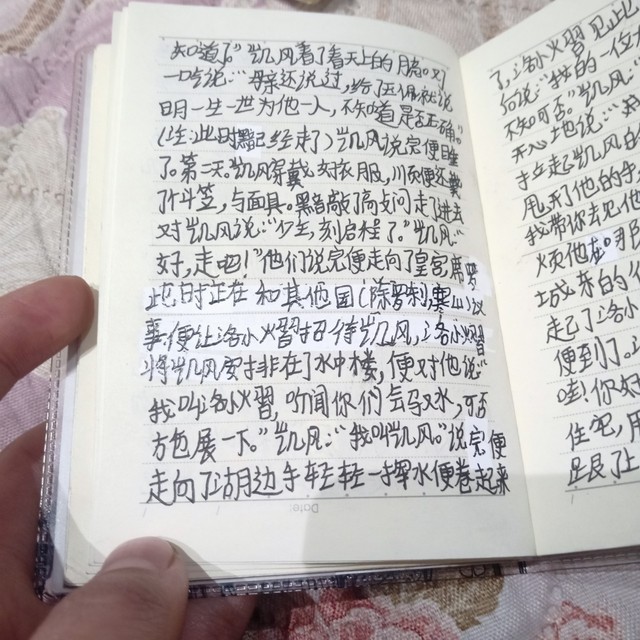 知道了。"凯风看了看天上的月亮。叹
一口气说:"母亲还说过,
明一生一世为他一人,不知道是否正确。"
(注:此时黑已经走了)凯风说完便睡
了。第二天。凯风穿戴好衣服,
了斗笠,与面具。黑敲了敲门走了进去
对凯风说:"少主,刻启程了。"凯风:"
好,走吧!"他们说完便走向了皇宫,席梦
此时正在和其他国(除罗刹,寒山)议
事便让洛小熠招待凯风,洛小熠
将凯风安排在了水中楼,便对他说:"
我叫洛小熠,听闻你们会驭水,可否
方也展一下。"凯风:"我叫凯风。"说完便
走向了湖边手轻轻一挥水便卷起来
了,洛小熠见此
问说:"我的一位
不知可否。"凯风:"
开心地说:"我
手拉起凯风的
甩开了他的手,
我带你去见他
烦他
城东的
走了洛小
便到了。
哇!你好
住吧,用